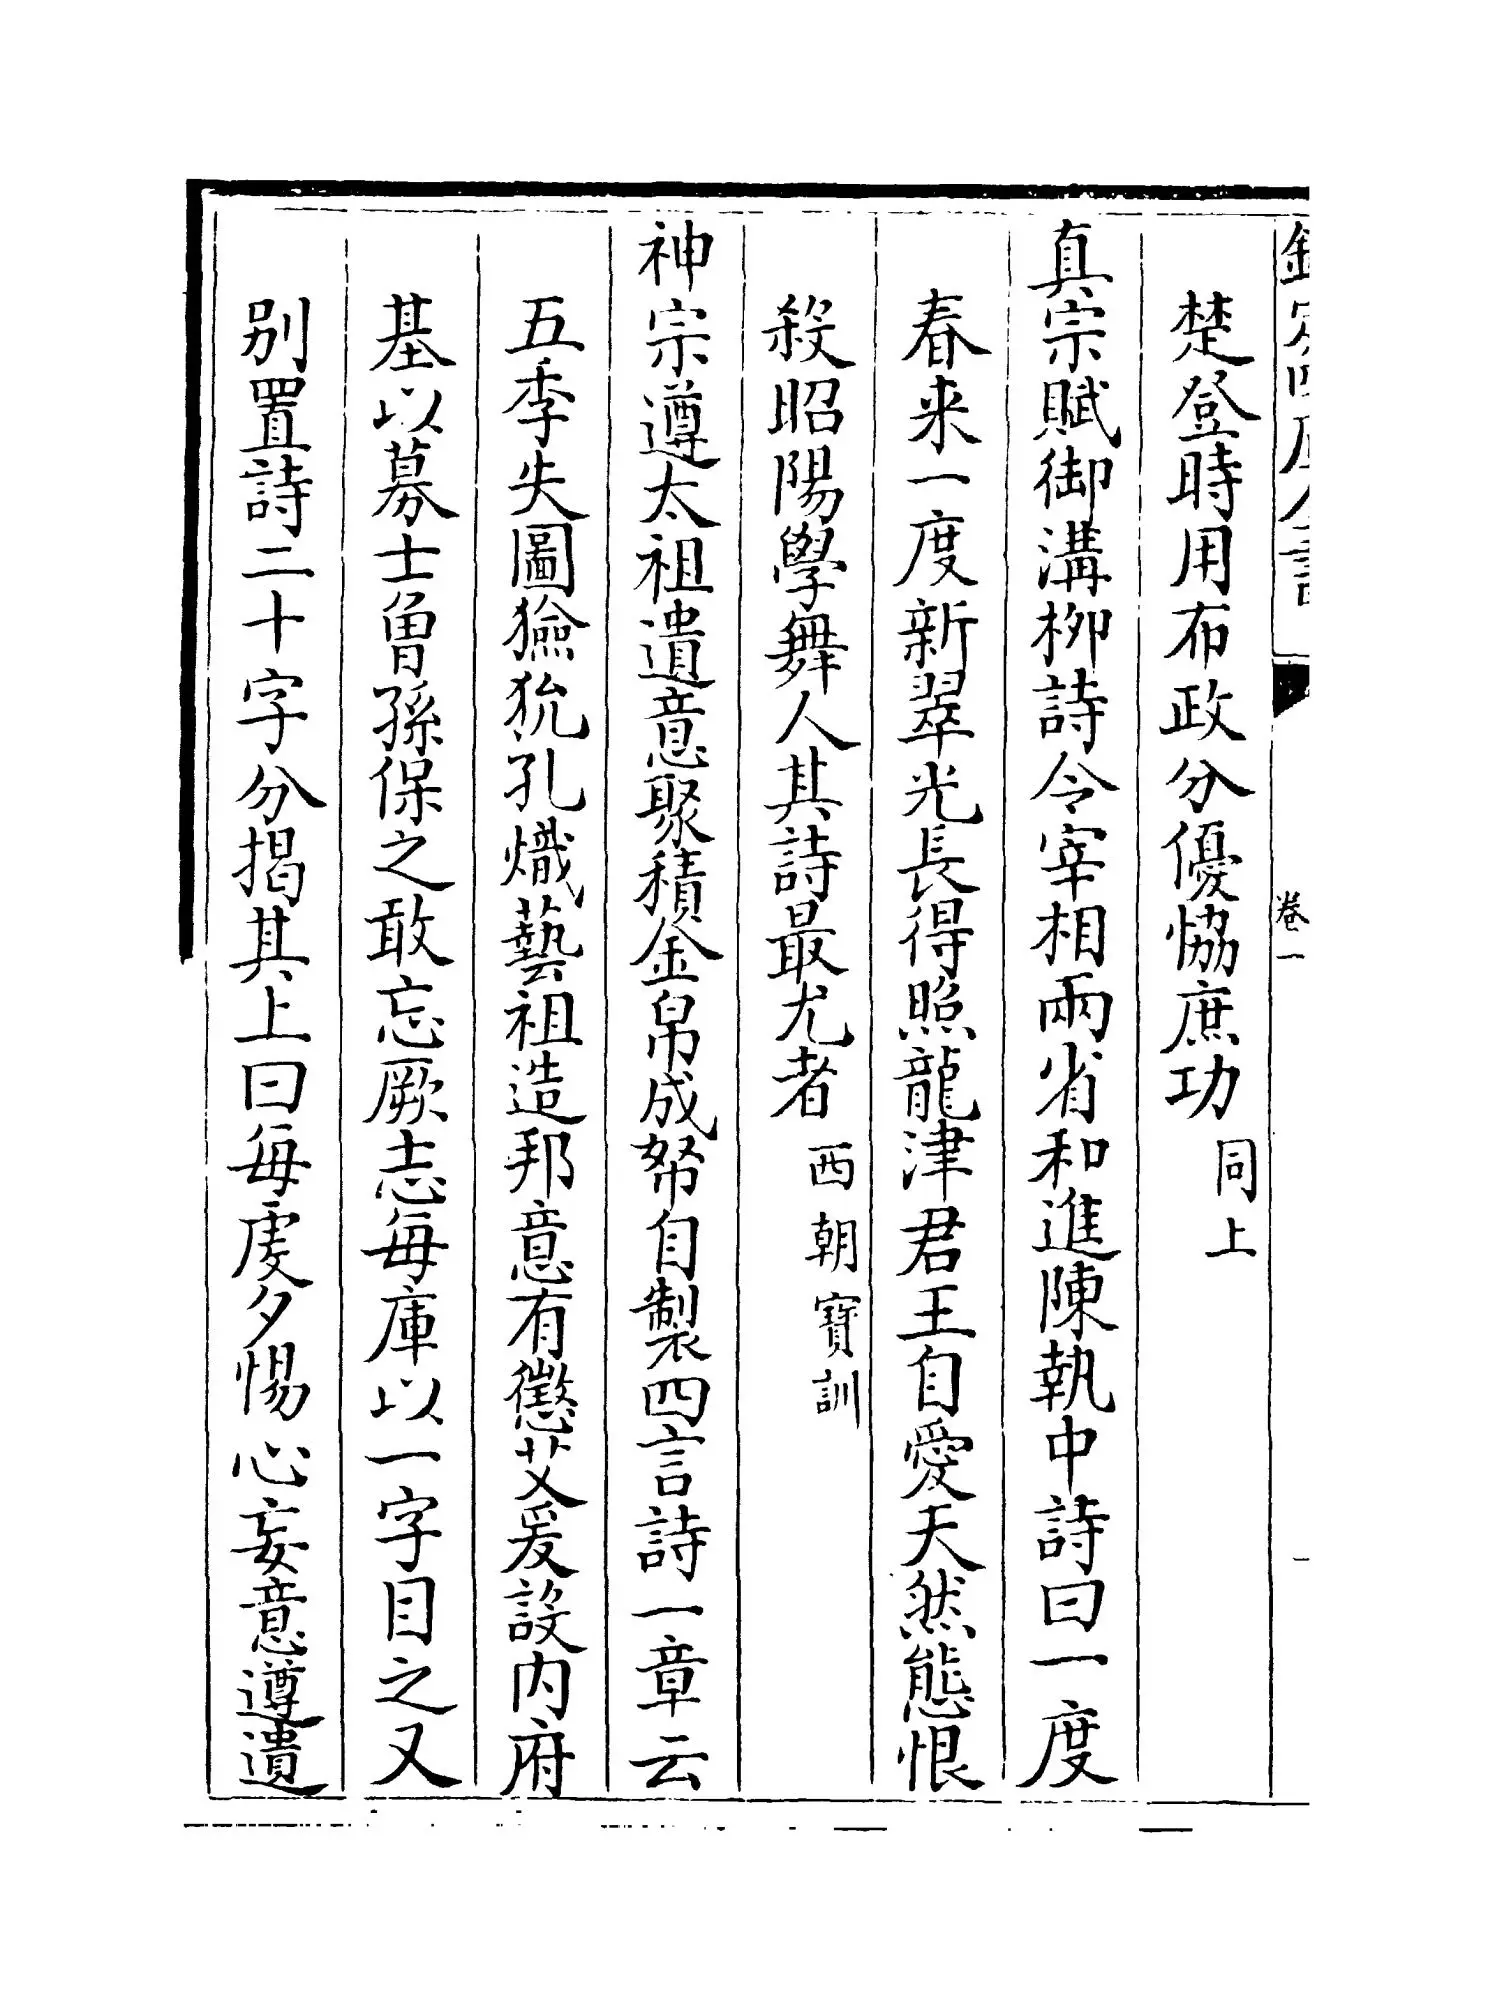 欽定四庫全書
卷一
楚登時用布政分優恊庶功同上
真宗賦御溝柳詩令宰相兩省和進陳執中詩曰一度
春来一度新翠光長得照龍津君王自愛天然態恨
殺昭陽學舞人其詩最尤者西朝寶訓
神宗遵太祖遺意聚積金帛成帑自製四言詩一章云
五季失圖獫狁孔熾藝祖造邦意有懲艾爰設内府
基以募士曾孫保之敢忘厥志每庫以一字目之又
别置詩二十字分揭其上曰每䖍夕惕心妄意遵遺